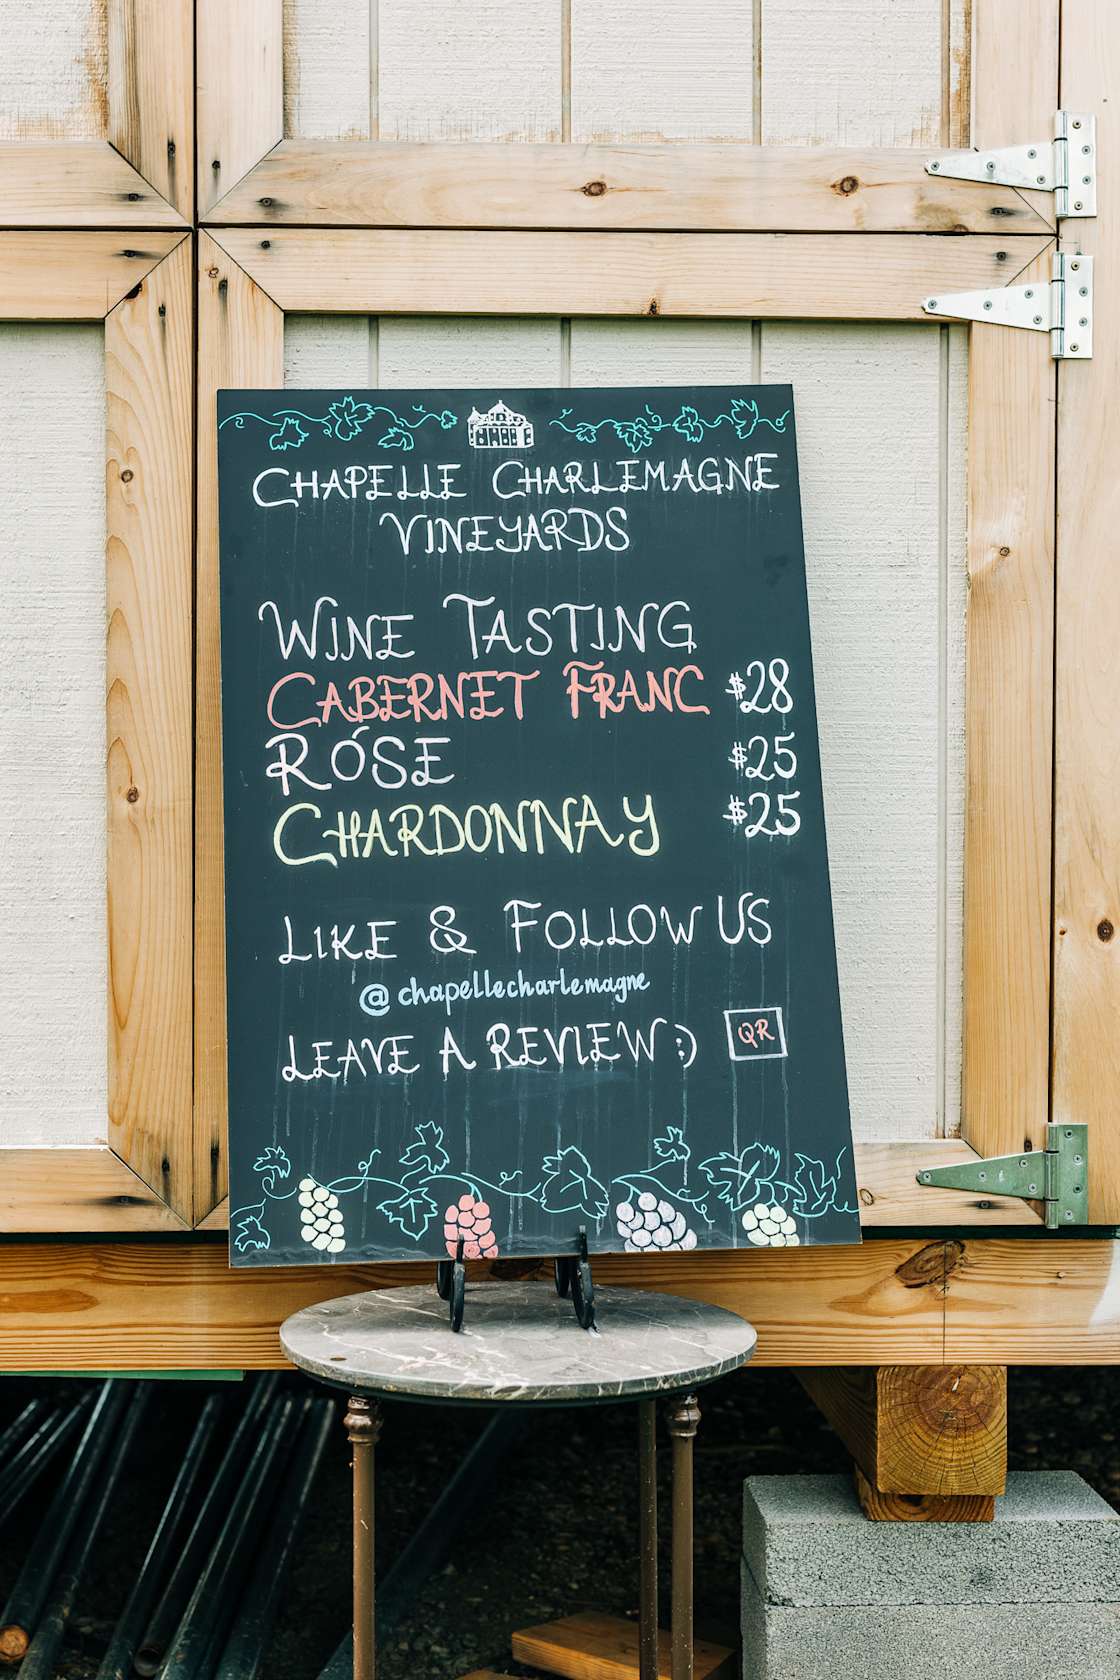 CHAPELLE CHARLEMAGNE
VINEYARDS
WINE TASTING
CABERNET FRANC $28
RÓSE $25
CHARDONNAY $25
LIKE & FOLLOW US
@chapellecharlemagne
LEAVE A REVIEW :) QR